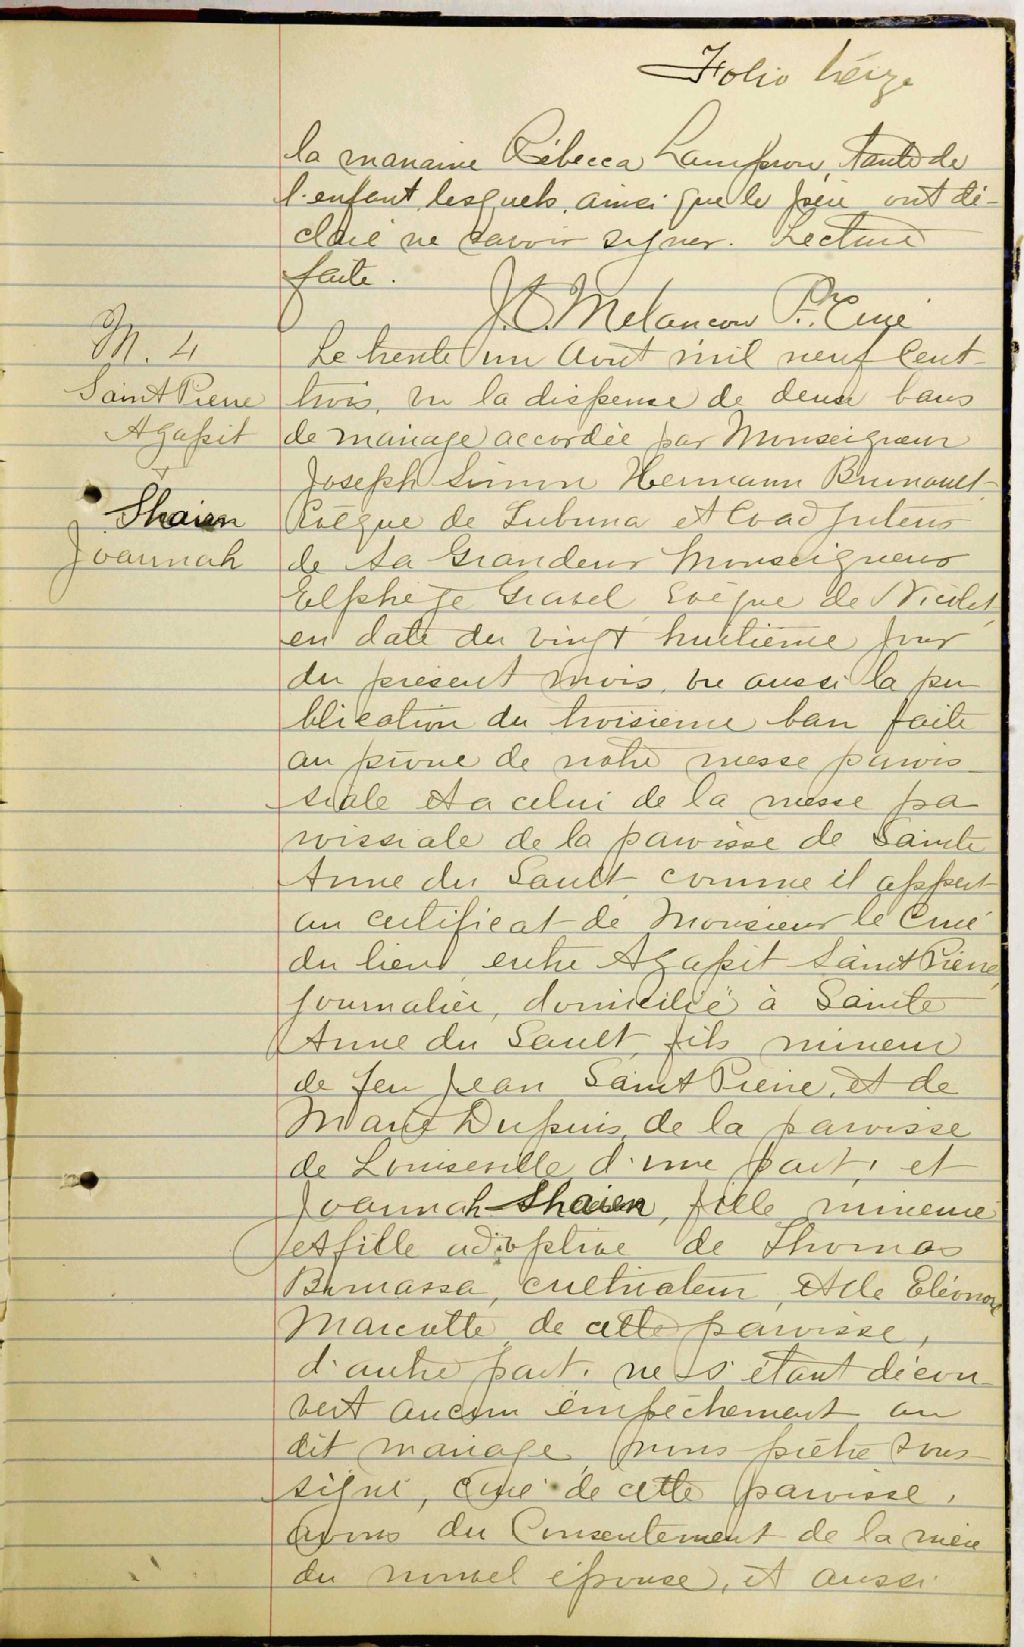 Folio treize
la marraine Rébecca Lampron, tante de
l'enfant, lesquels, ainsi que le père ont dé-
claré ne savoir signer. Lecture
faite.
J. C. Melancon Ptre Curé
M. 4
Saint Pierre
Agapit
+
Shaien
Joannah
Le trente un Août mil neuf Cent
trois, vu la dispense de deux bans
de mariage accordée par Monseigneur
Joseph Simon Hermann Brunault,
Evêque de Tubuna et Coadjuteur
de Sa Grandeur Monseigneur
Elphège Gravel, Evêque de Nicolet,
en date du vingt huitième jour
du présent mois, vu aussi la pu-
blication du troisième ban faite
au prône de notre messe parois-
siale et a celui de la messe pa-
roissiale de la paroisse de Sainte
Anne du Sault comme il appert
au certificat de Monsieur le Curé
du lieu, entre Agapit Saint Pierre,
journalier, domicilié à Sainte
Anne du Sault, fils mineur
de feu Jean Saint Pierre, et de
Marie Dupuis, de la paroisse
de Louiseville d'une part, et
Joannah Shaien, fille mineure
et fille adoptive de Thomas
Bernassa, cultivateur, et de Eléonore
Marcotte, de cette paroisse,
d'autre part, ne s'étant décou-
vert aucun empêchement au
dit mariage, nous prêtre sous-
signé, curé de cette paroisse,
avons du Consentement de la mère
du nouvel épouse, et aussi